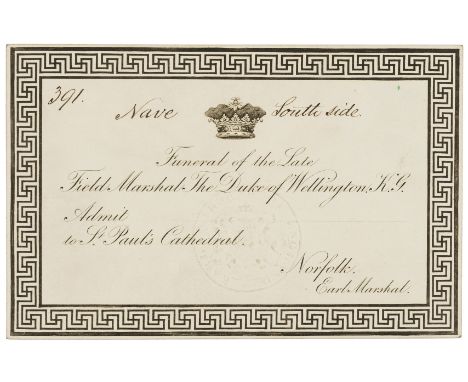 391.
Nave South side.
Funeral of the Late
Field Marshal The Duke of Wellington, K.G.
Admit
to St. Paul's Cathedral.
Norfolk.
Earl Marshal.